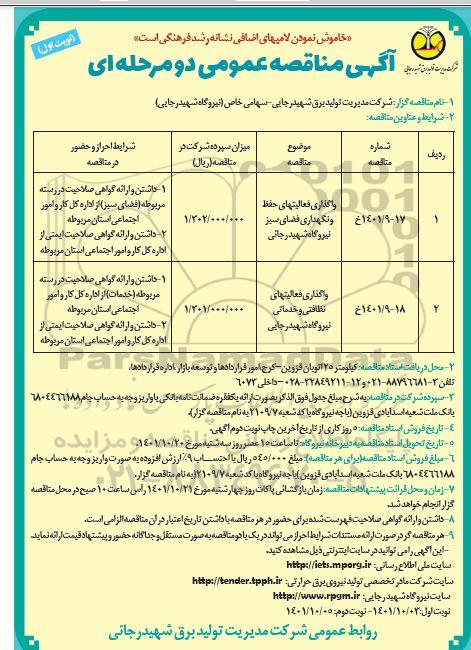 «خاموش نمودن لامپهای اضافی نشانه رشد فرهنگی است»
(نوبت اول)
آگهی مناقصه عمومی دو مرحله ای
شرکت مدیریت تولید برق شهید رجایی
۱- نام مناقصه گزار: شرکت مدیریت تولید برق شهید رجایی- سهامی خاص (نیروگاه شهید رجایی)
۲- شرایط و عناوین مناقصه:
ردیف
شماره مناقصه
موضوع مناقصه
میزان سپرده شرکت در مناقصه (ریال)
شرایط احراز و حضور در مناقصه
۱
۱۴۰۱/۹-۱۷خ
واگذاری فعالیتهای حفظ
ونگهداری فضای سبز
نیروگاه شهید رجائی
۱/۳۰۲/۰۰۰/۰۰۰
۱-داشتن وارائه گواهی صلاحیت در رسته
مربوطه (فضای سبز) از اداره کل کار و امور
اجتماعی استان مربوطه
۲-داشتن وارائه گواهی صلاحیت ایمنی از
اداره کل کار و امور اجتماعی استان مربوطه
۲
۱۴۰۱/۹-۱۸خ
واگذاری فعالیتهای
نظافتی و خدماتی
نیروگاه شهید رجایی
۱/۲۰۱/۰۰۰/۰۰۰
۱-داشتن وارائه گواهی صلاحیت در رسته
مربوطه (خدمات) از اداره کل کار و امور
اجتماعی استان مربوطه
۲-داشتن وارائه گواهی صلاحیت ایمنی از
اداره کل کار و امور اجتماعی استان مربوطه
۲- محل دریافت اسناد مناقصه: کیلومتر ۲۵ اتوبان قزوین – کرج، امور قراردادها و توسعه بازار، اداره قراردادها،
تلفن ۲-۸۸۷۹۶۶۸۱-۰۲۱ و ۱۲-۳۲۸۴۹۲۱۱-۰۲۸ - داخلی ۶۰۷۲
۳- سپرده شرکت در مناقصه: به شرح مبلغ جدول فوق الذکر بصورت ارائه یکفقره ضمانت نامه بانکی یا واریز وجه به حساب جام ۶۸۰۴۴۶۶۱۸۸
بانک ملت شعبه اسدآبادی قزوین (باجه نیروگاه با کد شعبه ۲۱۰۹/۷ به نام مناقصه گزار).
۴- تاریخ فروش اسناد مناقصه: ۵ روز کاری از تاریخ آخرین چاپ نوبت دوم آگهی.
۵- تاریخ تحویل اسناد مناقصه به دبیرخانه نیروگاه: تا ساعت ۱۵ عصر روز سه شنبه مورخ ۱۴۰۱/۱۰/۲۰.
۶- مبلغ فروش اسناد مناقصه (برای هر مناقصه): مبلغ ۵۴۵/۰۰۰ ریال با احتساب ۹٪ ارزش افزوده به صورت واریز وجه به حساب جام
۶۸۰۴۴۶۶۱۸۸ بانک ملت شعبه اسدآبادی قزوین (باجه نیروگاه با کد شعبه ۲۱۰۹/۷) به نام مناقصه گزار.
۷- زمان و محل قرائت پیشنهادات مناقصه: زمان بازگشائی پاکات روز چهارشنبه مورخ ۱۴۰۱/۱۰/۲۱ رأس ساعت ۱۰ صبح در محل مناقصه
گزار انجام خواهد شد.
۸- داشتن و ارائه گواهی صلاحیت فهرست شده برای حضور در هر مناقصه با داشتن تاریخ اعتبار در آن مناقصه الزامی است.
۹- هر مناقصه گر در صورت ارائه مستندات شرایط احراز می تواند در یک یا دو مناقصه به صورت مستقل و جداگانه حضور و پیشنهاد قیمت ارائه نماید.
- این آگهی را می توانید در سایت اینترنتی ذیل مشاهده کنید.
سایت ملی اطلاع رسانی: http://iets.mporg.ir
سایت شرکت مادر تخصصی تولید نیروی برق حرارتی: http://tender.tpph.ir
سایت نیروگاه شهید رجایی: http://www.rpgm.ir
نوبت اول: ۱۴۰۱/۱۰/۰۳- نوبت دوم: ۱۴۰۱/۱۰/۰۵
روابط عمومی شرکت مدیریت تولید برق شهید رجائی